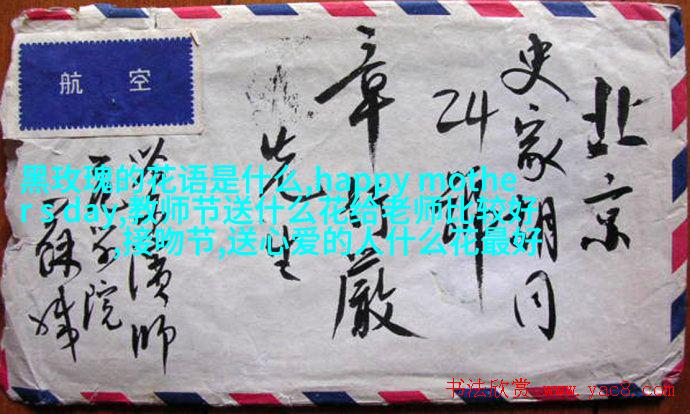 航空
北京
史家胡同
24
章行嚴
先生
濱师
院
黑玫瑰的花语是什么,happy mothe
r s day,教师节送什么花给老师比较好
,接吻节,送心爱的人什么花最好
书法欣赏 www.yac8.com